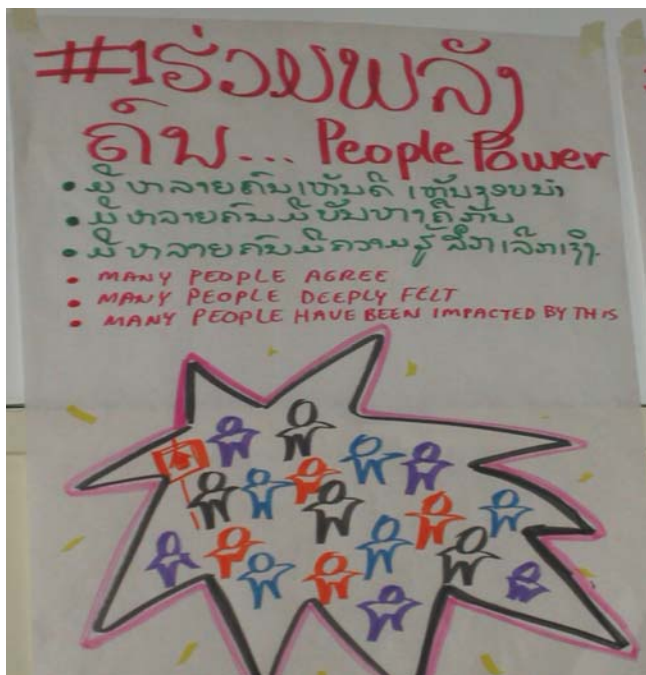 #1ຮ່ວມພລັງ
ຄົນ... People Power
• ມີຫລາຍຄົນເຫັນດີ ເຫັນຊອບນຳ
• ມີ ຫລາຍຄົນມີບັນຫາຄືກັນ
• ມີ ຫລາຍຄົນມີຄວາມຮູ້ ສຶກເລິກເຊິ່ງ
• MANY PEOPLE AGREE
• MANY PEOPLE DEEPLY FELT
• MANY PEOPLE HAVE BEEN IMPACTED BY THIS